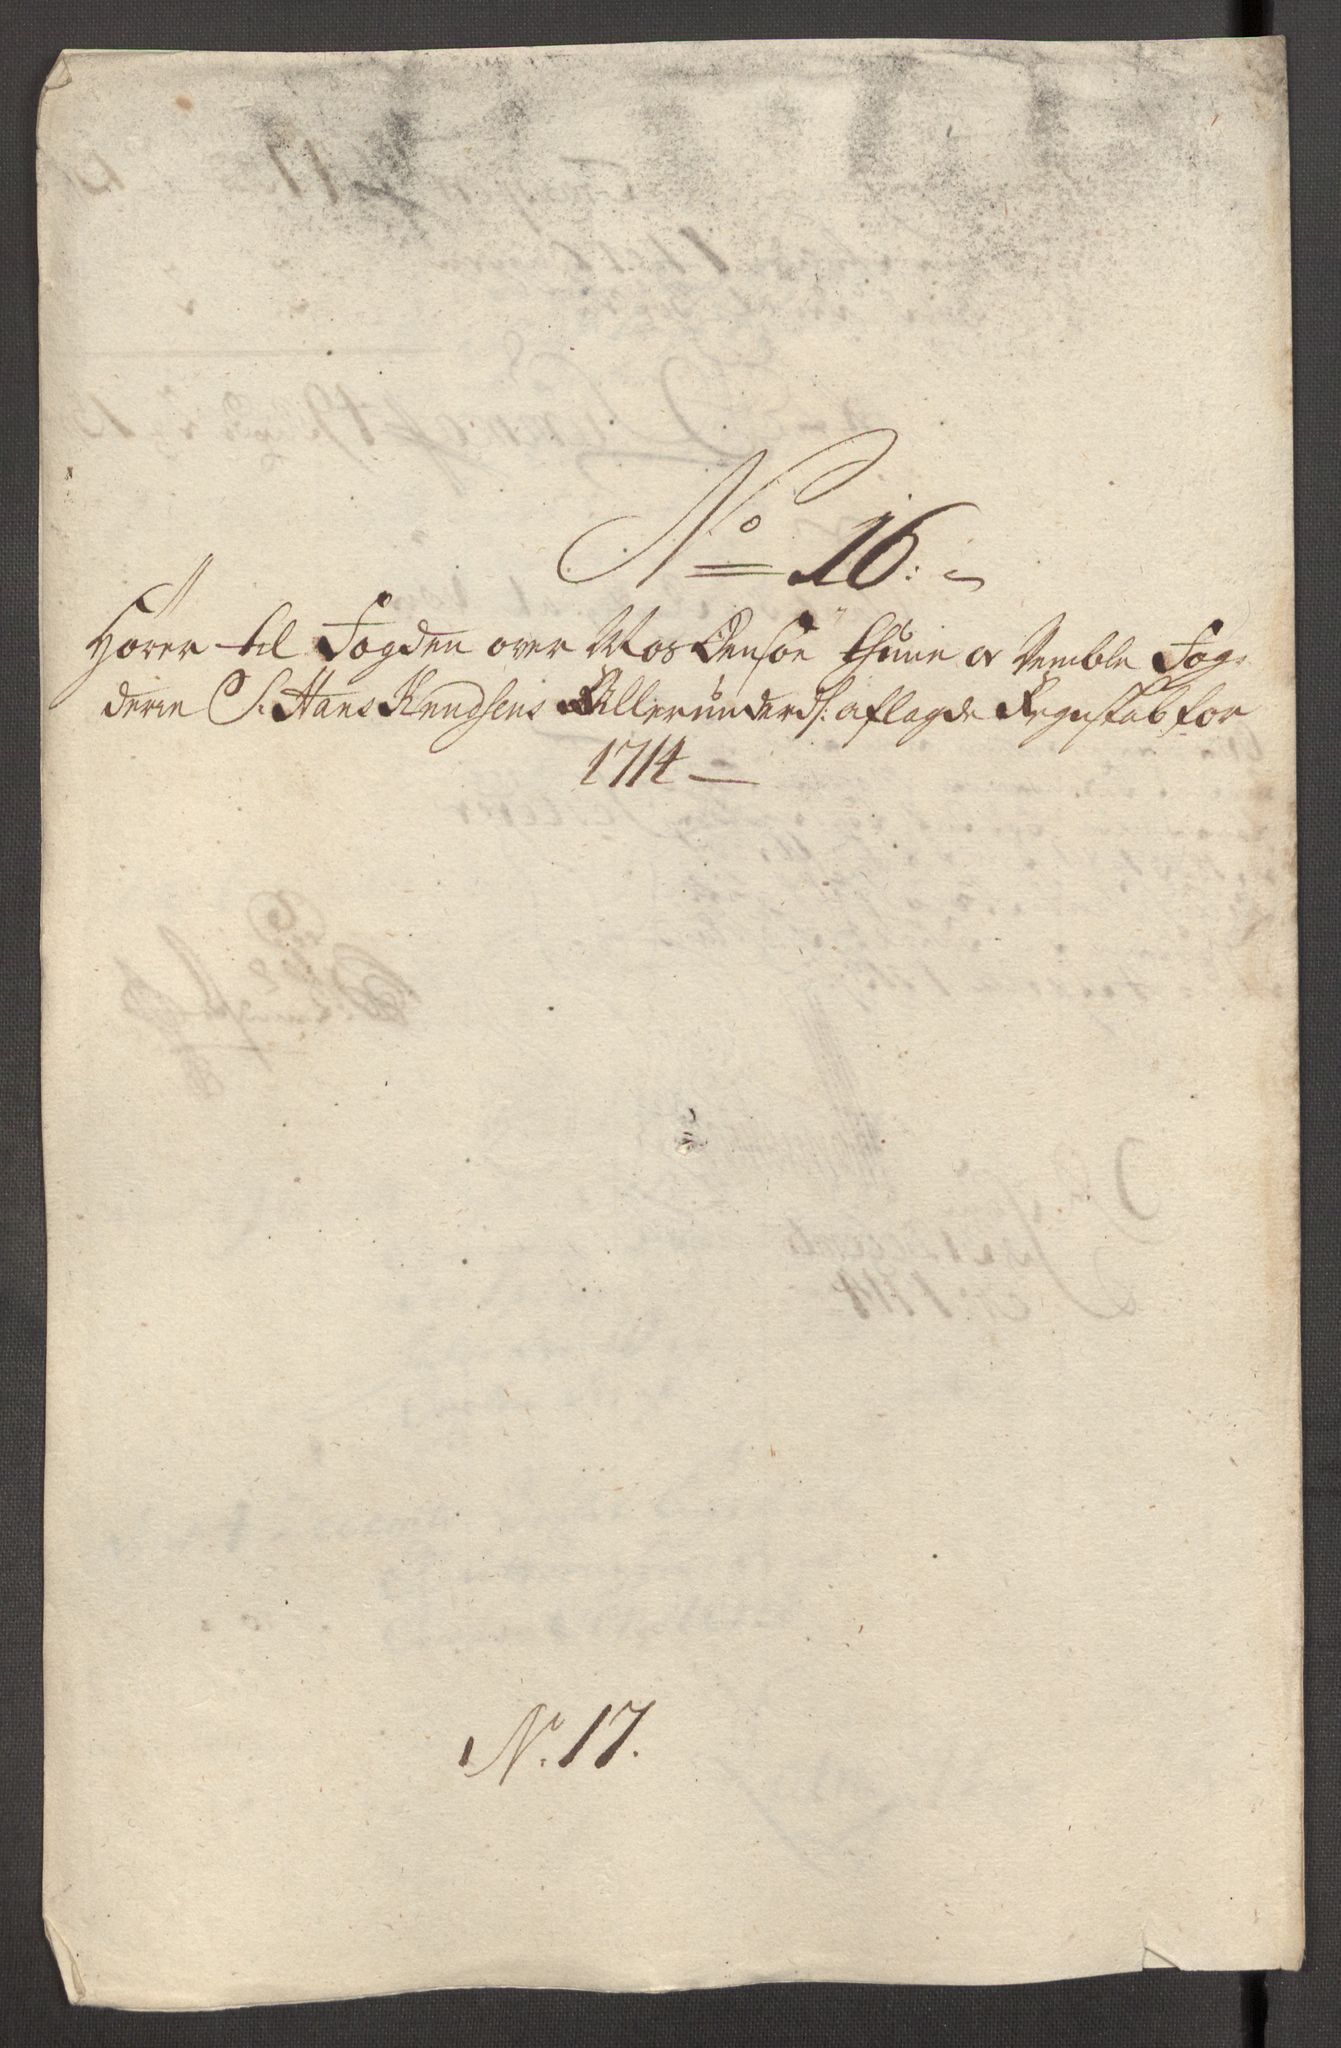 No 16:
Hører til Fogden over Mos Onsøe Thune og Vemble Fog-
derie Sr: Hans Knudsens Allerunderd: aflagde Regnskab for
1714
No: 17.